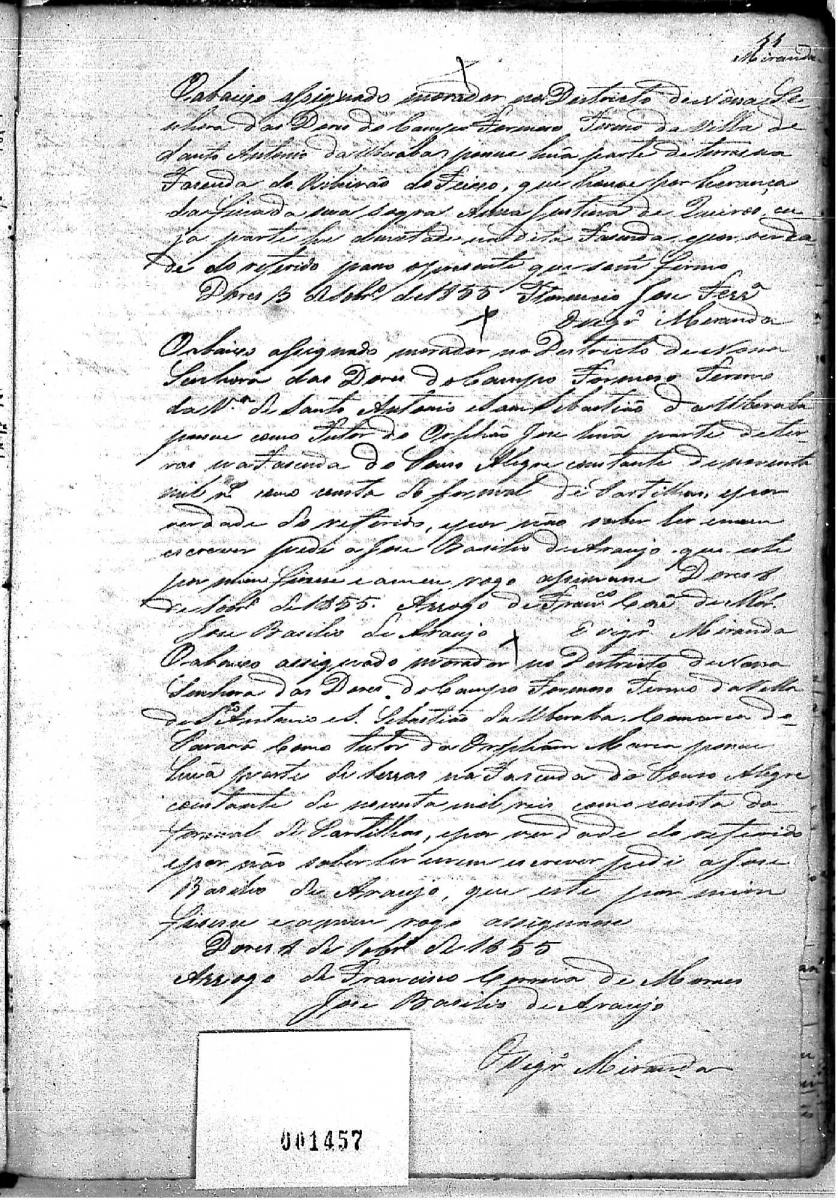 55
Miranda
O abaixo assignado morador no Destricto de Nossa Se-
nhora das Dores do Campo Formoso Termo da Villa de
Santo Antonio da Uberaba possue huã parte de terras na
Fazenda do Ribeirão do Feixo, que houve por herança
da finada sua sogra Anna Justina de Queiros, cu-
ja parte he citada na dita Fazenda e por verda-
de do referido passo o presente que sem firmo
Dores 3 de 7br.º de 1855 Florencio Jose Ferr.ª
O vigr.º Miranda
O abaixo assignado morador no Destricto de Nossa
Senhora das Dores do Campo Formoso Termo
da V.ª de Santo Antonio e Sam Sebastião da Uberaba
possue como Tutor do Orphão Jose huã parte de ter-
ras na Fazenda do Pouso Alegre constante de noventa
mil r.s como consta do formal de Partilhas, e por
verdade do referido, e por não saber ler e nem
escrever pede a Jose Basilio de Araujo que este
por mim fizesse e a meu rogo assignasse Dores 8
de 7br.º de 1855. Arrogo de Fran.co Corr.ª de Mor.
Jose Basilio de Araujo O vigr.º Miranda
O abaixo assignado morador no Destricto de Nossa
Senhora das Dores do Campo Formoso Termo da Villa
de S.to Antonio e S. Sebastião da Uberaba Comarca do
Paraná Como tutor da Orphãm Maria possue
huã parte de terras na Fazenda do Pouso Alegre
constante de noventa mil reis como consta do
formal de Partilhas, e por verdade do referido
e por não saber ler e nem escrever pede a Jose
Basilio de Araujo, que este por mim
fizesse e a meu rogo assignasse
Dores 8 de 7br.º de 1855
Arrogo de Francisco Correia de Moraes
Jose Basilio de Araujo
O vigr.º Miranda
001457